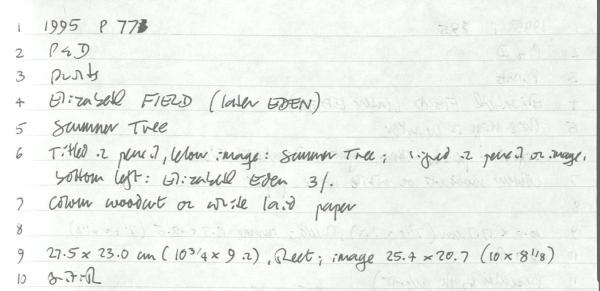 1 1995 P 773
2 P & D
3 Prints
4 Elizabeth FIELD (later EDEN)
5 Summer Tree
6 Titled in pencil, below image: Summer Tree; signed in pencil on image,
bottom left: Elizabeth Eden 3/.
7 Colour woodcut on white laid paper
8
9 27.5 x 23.0 cm (10 3/4 x 9 in), Rect; image 25.4 x 20.7 (10 x 8 1/8)
10